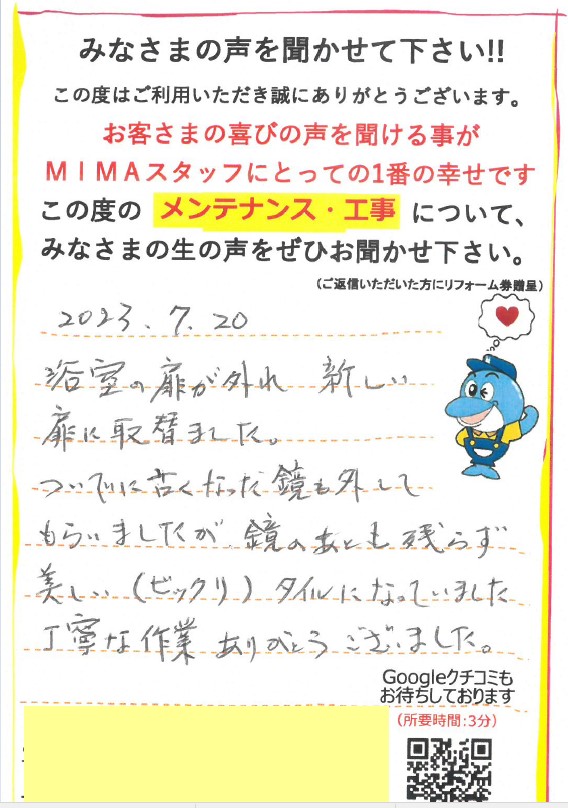 みなさまの声を聞かせて下さい!!
この度はご利用いただき誠にありがとうございます。
お客さまの喜びの声を聞ける事が
MIMAスタッフにとっての1番の幸せです
この度の メンテナンス・工事 について、
みなさまの生の声をぜひお聞かせ下さい。
(ご返信いただいた方にリフォーム券贈呈)
2023.7.20
浴室の扉が外れ 新しい
扉に取替ました。
ついでに古くなった鏡も外して
もらいましたが、鏡のあとも残らず
美しい(ビックリ)タイルになっていました
丁寧な作業ありがとうございました。
Googleクチコミも
お待ちしております
(所要時間:3分)